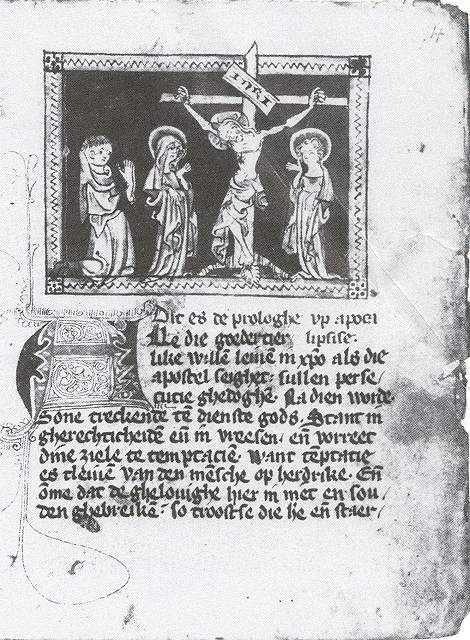 INRI
Dit es de prologhe vp apoca
Lle die goedertier lipsise.
like wille leuen in xpo als die
apostel seighet. sullen perse/
cutie ghedoghe. Na dien worde.
Sone treckende te dienste gods. Stant in
gherechticheide en in vreesen. en vorreet
dine ziele te temptatie. Want teptatie
es tleuen van den mesche op herdrike. En
ome dat de ghelouighe hier in niet en sou/
den ghebreike. so troostse die he en staer/